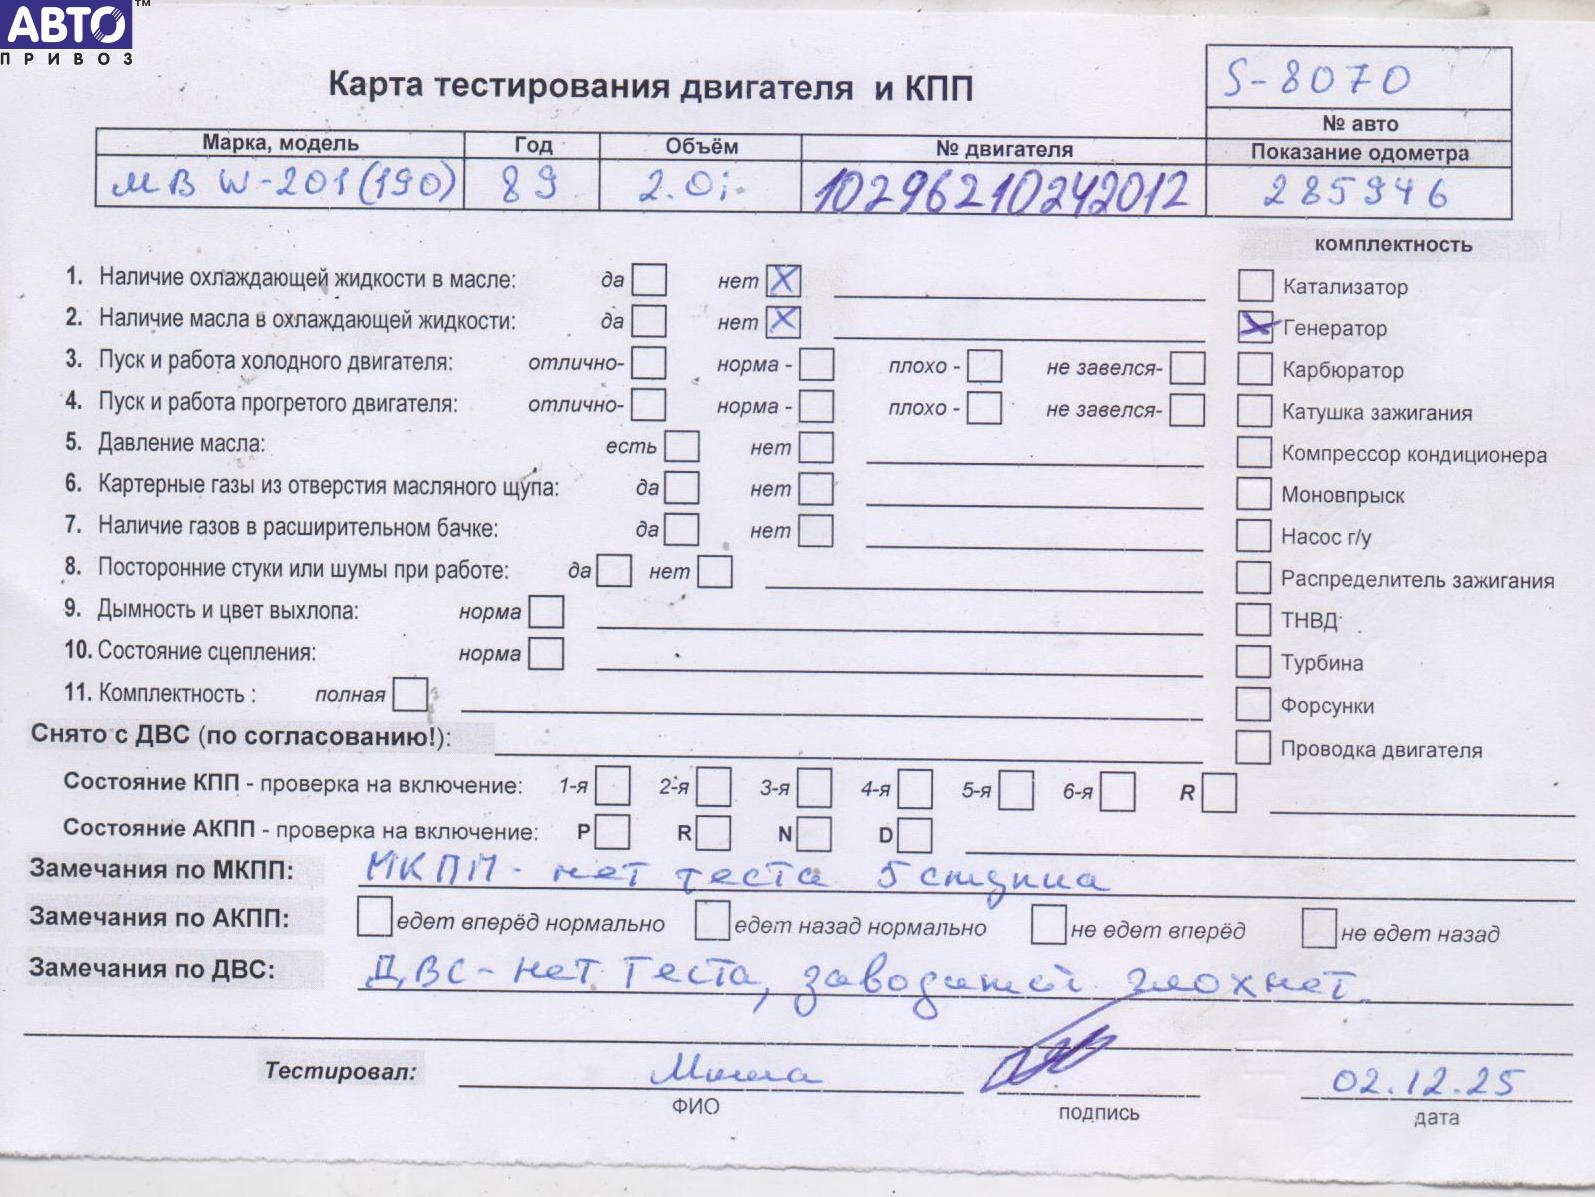 АВТО™
ПРИВОЗ
Карта тестирования двигателя и КПП
S-8070
№ авто
Марка, модель Год Объём № двигателя Показание одометра
МВ W-201 (190) 89 2.0i 10296210242012 285946
комплектность
1. Наличие охлаждающей жидкости в масле: да нет X
Катализатор
2. Наличие масла в охлаждающей жидкости: да нет X
Генератор
3. Пуск и работа холодного двигателя: отлично- норма - плохо - не завелся-
Карбюратор
4. Пуск и работа прогретого двигателя: отлично- норма - плохо - не завелся-
Катушка зажигания
5. Давление масла: есть нет
Компрессор кондиционера
6. Картерные газы из отверстия масляного щупа: да нет
Моновпрыск
7. Наличие газов в расширительном бачке: да нет
Насос г/у
8. Посторонние стуки или шумы при работе: да нет
Распределитель зажигания
9. Дымность и цвет выхлопа: норма
ТНВД
10. Состояние сцепления: норма
Турбина
11. Комплектность : полная
Форсунки
Снято с ДВС (по согласованию!):
Проводка двигателя
Состояние КПП - проверка на включение: 1-я 2-я 3-я 4-я 5-я 6-я R
Состояние АКПП - проверка на включение: P R N D
Замечания по МКПП: МКПП - нет теста 5 ступка
Замечания по АКПП: едет вперёд нормально едет назад нормально не едет вперёд не едет назад
Замечания по ДВС: ДВС - нет теста, глохнет.
Тестировал: Миша 02.12.25
ФИО подпись дата